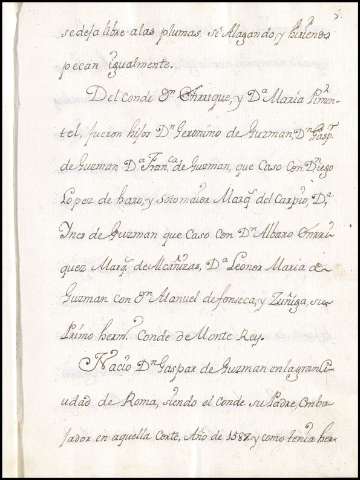 se deja libre alas plumas, si Alagando, y hiriendo
pecan igualmente.
Del Conde Dn. Enrrique, y Da. Maria Pimen-
tel, fueron hijos Dn. Geronimo de Guzman, Dn. Gasp.r
de Guzman Da. Fran.ca de Guzman, que Caso Con Dn. Diego
Lopez de haro, y sotomaior Marq.s del Carpio, Da.
Ynes de Guzman que Caso con Dn. Albaro Enrri-
quez Marq.s de Alcañizas, Da. Leonor Maria de
Guzman con Dn. Manuel de fonseca, y Zuñiga, su
Primo herm.o Conde de Monte Rey.
Nacio Dn. Gaspar de Guzman en la gran Ci-
udad de Roma, siendo el Conde su Padre Emba-
jador en aquella Corte, Año de 1587 y como tenia her-